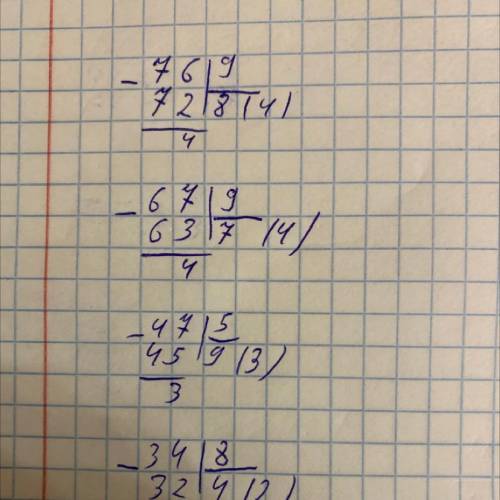 - 76 | 9
72 | 8 (4)
4
- 67 | 9
63 | 7 (4)
4
- 47 | 5
45 | 9 (3)
3
- 34 | 8
32 | 4 (2)